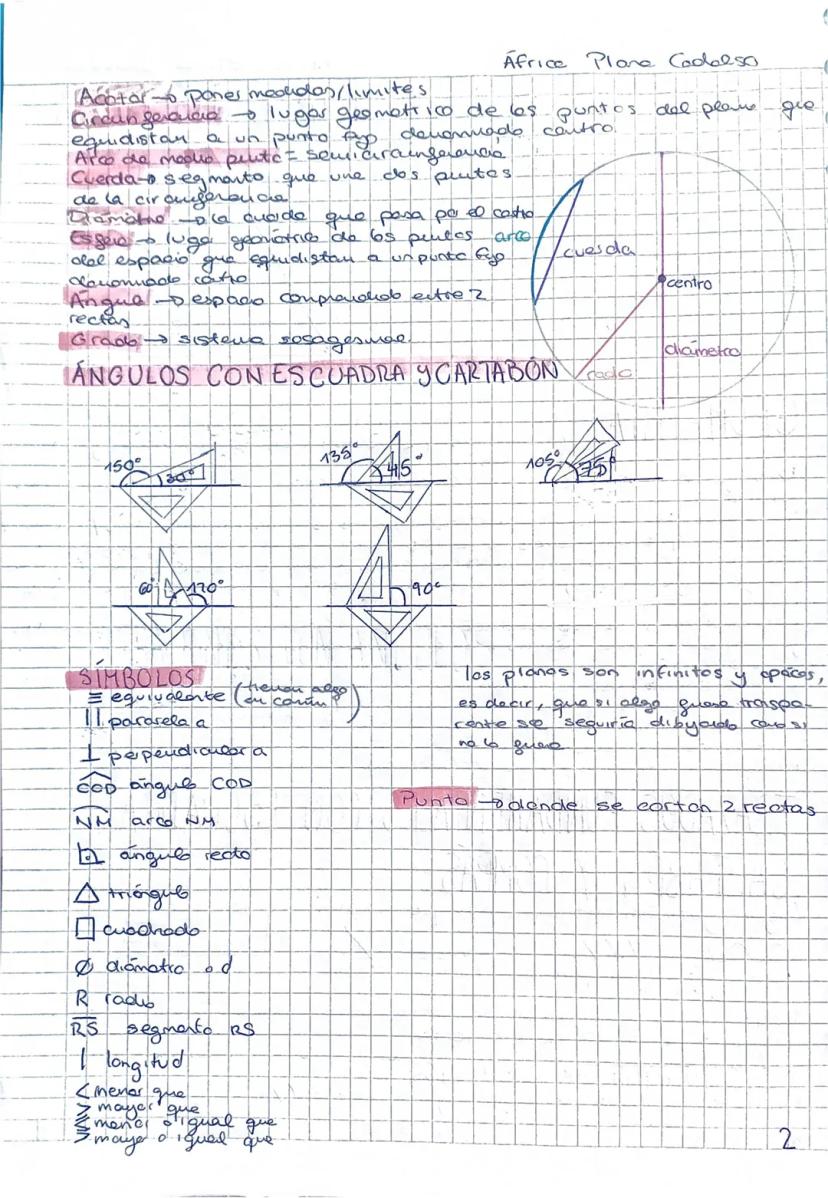 África Plana Cadalso
Acotar → poner medidas/límites
Circunferencia → lugar geométrico de los puntos del plano que
equidistan a un punto fijo denominado centro.
Arco de medio punto = semicircunferencia
Cuerda → segmento que une dos puntos
de la circunferencia
Diámetro → la cuerda que pasa por el centro
Esfera → lugar geométrico de los puntos
del espacio que equidistan a un punto fijo
denominado centro
Ángulo → espacio comprendido entre 2
rectas
Grado → sistema sexagesimal.
arco
cuerda
centro
diámetro
radio
ÁNGULOS CON ESCUADRA Y CARTABÓN
150° 30°
135° 45°
105° 75°
60° 120°
90°
SÍMBOLOS
≡ equivalente (tienen algo
en común)
|| paralela a
⊥ perpendicular a
COD ángulo COD
NM arco NM
ángulo recto
△ triángulo
□ cuadrado
Ø diámetro o d
R radio
RS segmento RS
l longitud
< menor que
> mayor que
≤ menor o igual que
≥ mayor o igual que
los planos son infinitos y opacos,
es decir, que si algo fuese transpa-
rente se seguiría dibujando como si
no lo fuese
Punto → donde se cortan 2 rectas
2